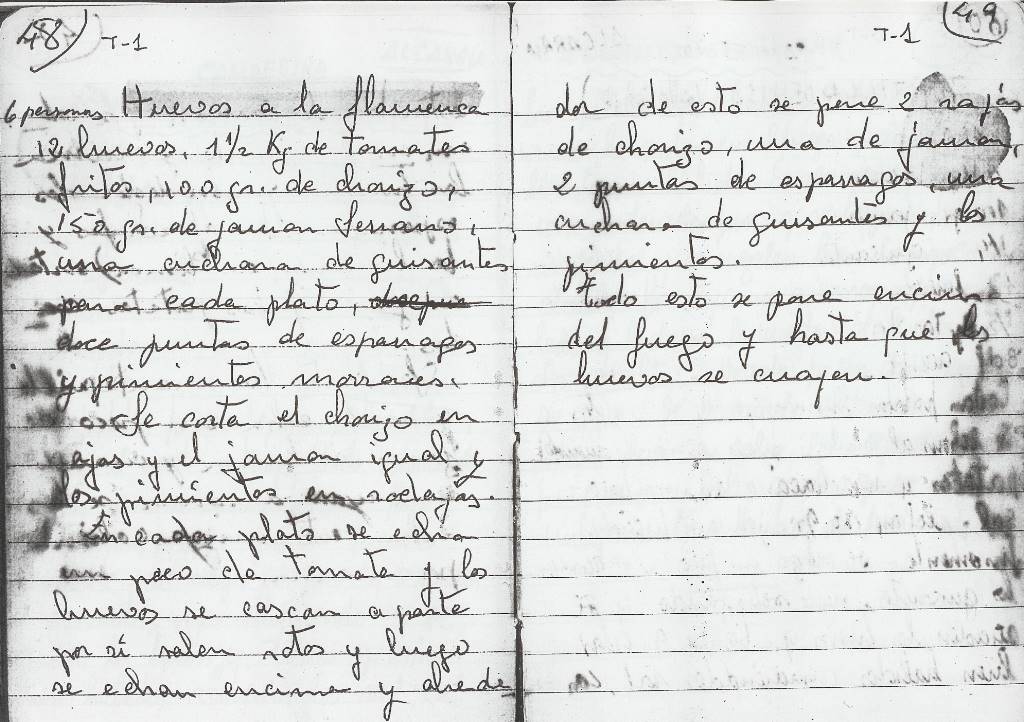 48 T-1
6 personas Huevos a la flamenca
12 huevos, 1 1/2 Kg de tomates
fritos, 100 gr. de chorizo,
150 gr. de jamon Serrano,
una cuchara de guisantes
para cada plato,
doce puntas de esparragos
y pimientos morrones.
Se corta el chorizo en
rajas y el jamon igual y
los pimientos en rodajas.
En cada plato se echa
un poco de tomate y los
huevos se cascan aparte
por si salen rotos y luego
se echan encima y alrede
T-1 49
dor de esto se pone 2 rajas
de chorizo, una de jamon,
2 puntas de esparragos, una
cuchara de guisantes y los
pimientos.
todo esto se pone encima
del fuego y hasta que los
huevos se cuajen.